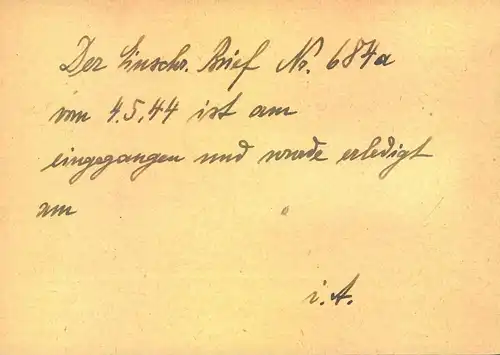 Der Einschr. Brief No. 684a
vom 4.5.44 ist am
eingegangen und wurde erledigt
am
i.A.